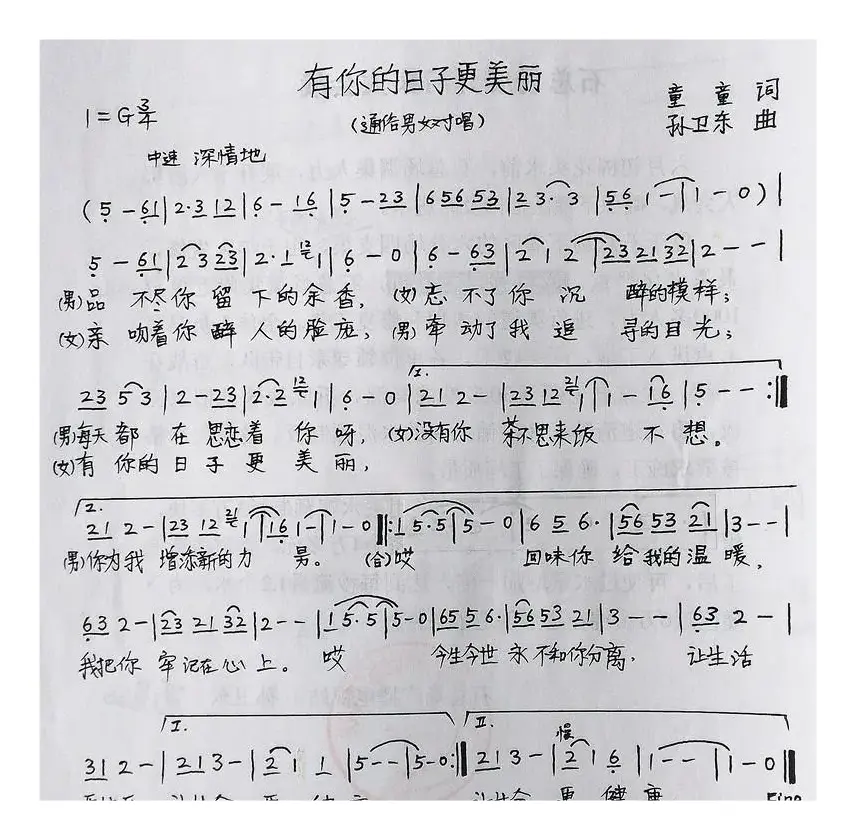 有你的日子更美丽
(通俗男女对唱)
童童 词
孙卫东 曲
1=G 3/4
中速 深情地
(5 - 61|2·3 12|6 - 16|5 - 23|6 56 53|2 3· 3|56 1 -|1 - 0)|
5 - 61|2 3 23|2·1 12 1|6 - 0|6 - 63|2 1 2|23 21 32|2 - -|
(男)品 不尽你 留 下的余香, (女)忘 不了你 沉 醉的模样;
(女)亲 吻着你 醉 人的脸庞, (男)牵 动了我 追 寻的目光;
1.
23 5 3|2 - 23|2·2 12 1|6 - 0|21 2 -|23 12 21 1|1 - 16|5 - - :‖
(男)每天 都 在 思恋着 你呀, (女)没有你 茶不思来饭 不 想。
(女)有 你的日子更美丽,
2.
21 2 -|23 12 21|16 1 -|1 - 0‖:1 5·5|5 - 0|6 5 6·|56 53 21|3 - -|
(男)你为我 增添新的力 男。 (合)哎 回味你 给我的温暖,
63 2 -|23 21 32|2 - -|1 5·5|5 - 0|65 5 6·|56 53 21|3 - -|63 2 -|
我把你 牢记在心上。 哎 今生今世 永不和你分离, 让生活
I. II. 慢
31 2 -|21 3 -|2 1 1|5 - -|5 - 0:‖21 3 -|2 1 6|1 - -|1 - 0‖
让生命 更 健 康
Fine